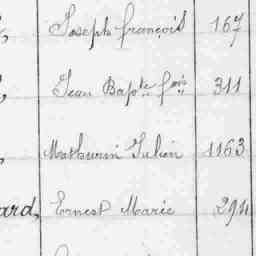 Joseph françois 167
Jean Bapte fois 311
Mathurin Julien 1163
ard, Ernest Marie 294